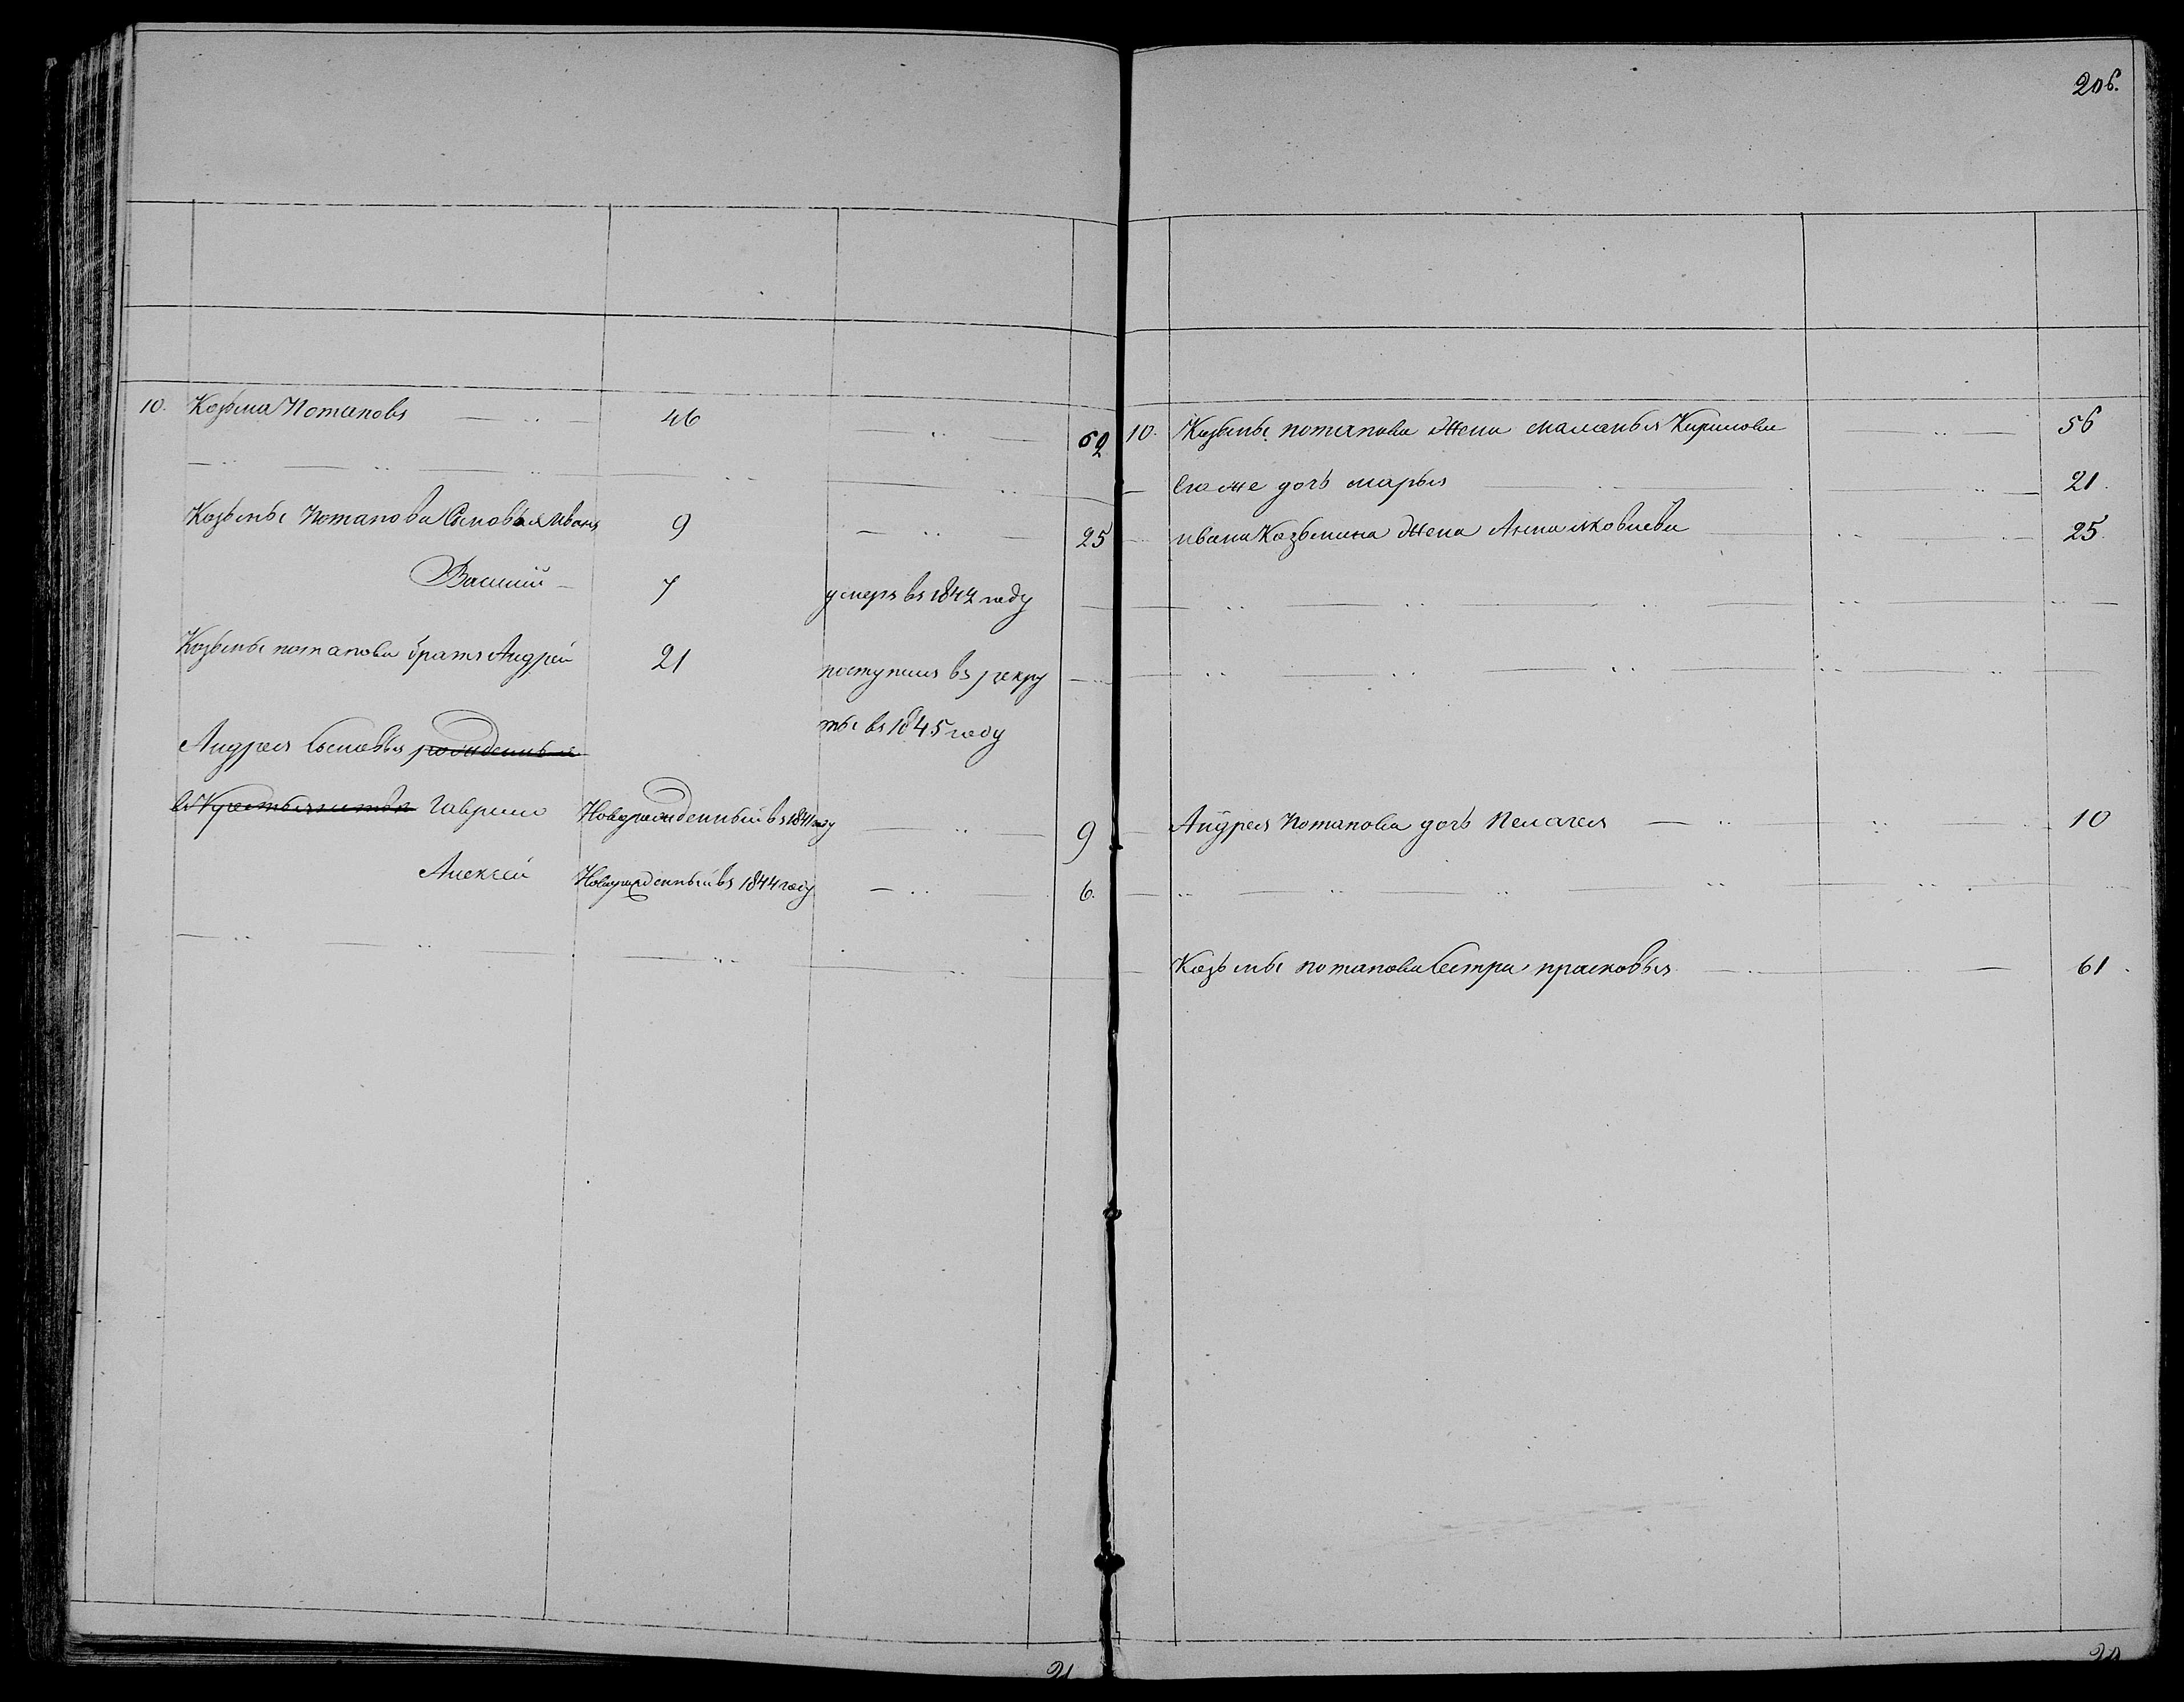 206.
10. Козьма Потаповъ 46 62
Козьмы Потапова Сыновья Иванъ 9 25
Василий 7 умеръ въ 1842 году
Козьмы потапова братъ Андрей 21 поступилъ въ рекру
ты въ 1845 году
Андрея Сыновья рожденные
Гаврило Новорожденный въ 1841 году 9
Алексей Новорожденный въ 1844 году 6.
10. Козьмы потапова жена маланья Кирилова 56
Его же дочь марья 21.
ивана Козьмина жена Анна яковлева 25.
Андрея Потапова дочь Пелагея 10
Козьмы потапова Сестра прасковья 61.